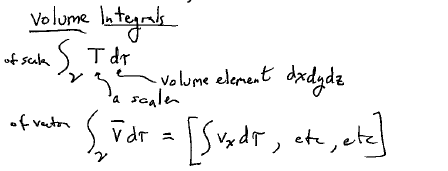 Volume Integrals
of scalar ∫_V T dτ
volume element dxdydz
a scaler
of vector ∫_V V̄ dτ = [∫ v_x dτ, etc, etc]